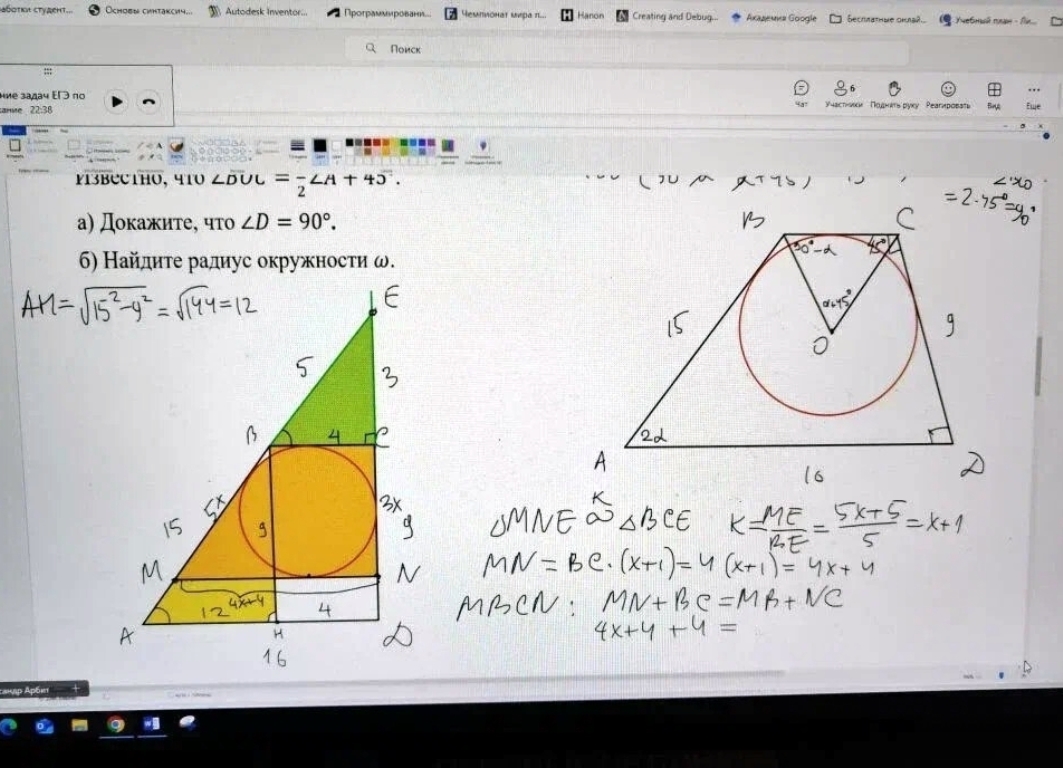 Основы синтаксич...
Autodesk Inventor...
Программировани...
Чемпионат мира п...
Hanon
Creating and Debug...
Академия Google
Бесплатные онлай...
Учебный план - Ли...
Поиск
ние задач ЕГЭ по
22:38
Чат
6
Участники
Поднять руку
Реагировать
Вид
Еще
Известно, что ∠BOC = 1/2∠A + 45°.
а) Докажите, что ∠D = 90°.
б) Найдите радиус окружности ω.
= 2·45° = 90°
AH = √15²-9² = √144 = 12
E
5
3
B
4
C
5x
15
9
3x
9
M
N
12
4x+4
4
A
H
D
16
B
C
90°-α
45°
α+45°
O
15
9
2α
A
D
16
△MNE ∾ △BCE
K
K = ME/BE = 5x+5/5 = x+1
MN = BC·(x+1) = 4(x+1) = 4x+4
MBCN: MN+BC = MB+NC
4x+4+4 =
сандр Арбит